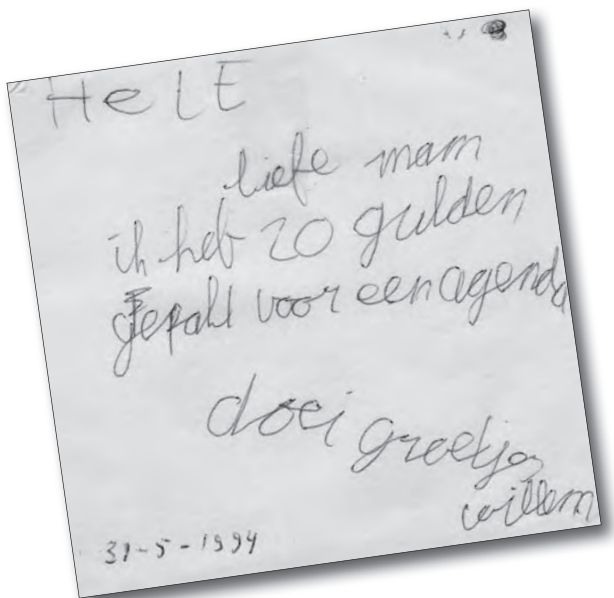 HeLE
liefe mam
ik heb 20 gulden
gepakt voor een agenda
doei groetjes
willem
31-5-1994